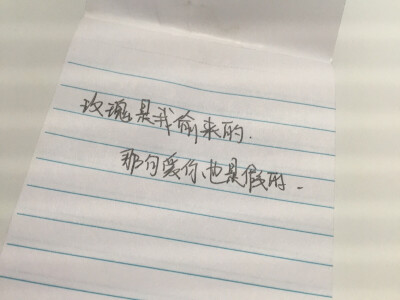 玫瑰是我偷来的.
那句爱你、也是假的.